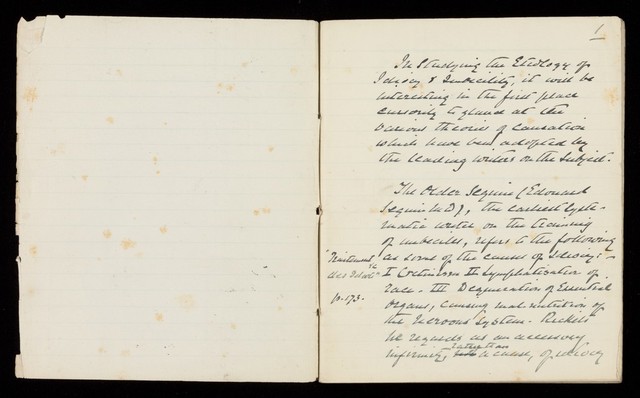 1
In studying the Etiology of
Idiocy & Imbecility, it will be
interesting in the first place
cursorily to glance at the
various theories of causation
which have been adopted by
the leading writers on the subject.
The Older Seguin (Edouard
Seguin M.D), the earliest syste-
matic writer on the training
of imbeciles, refers to the following
as some of the causes of Idiocy: -
"Traitement
des Idiots"
p. 173.
I Cretinism II of
race - III Degeneration of Essential
organs, causing malnutrition of
the Nervous System - Rickets
he regards as an accessory
infirmity, rather than a cause, of idiocy